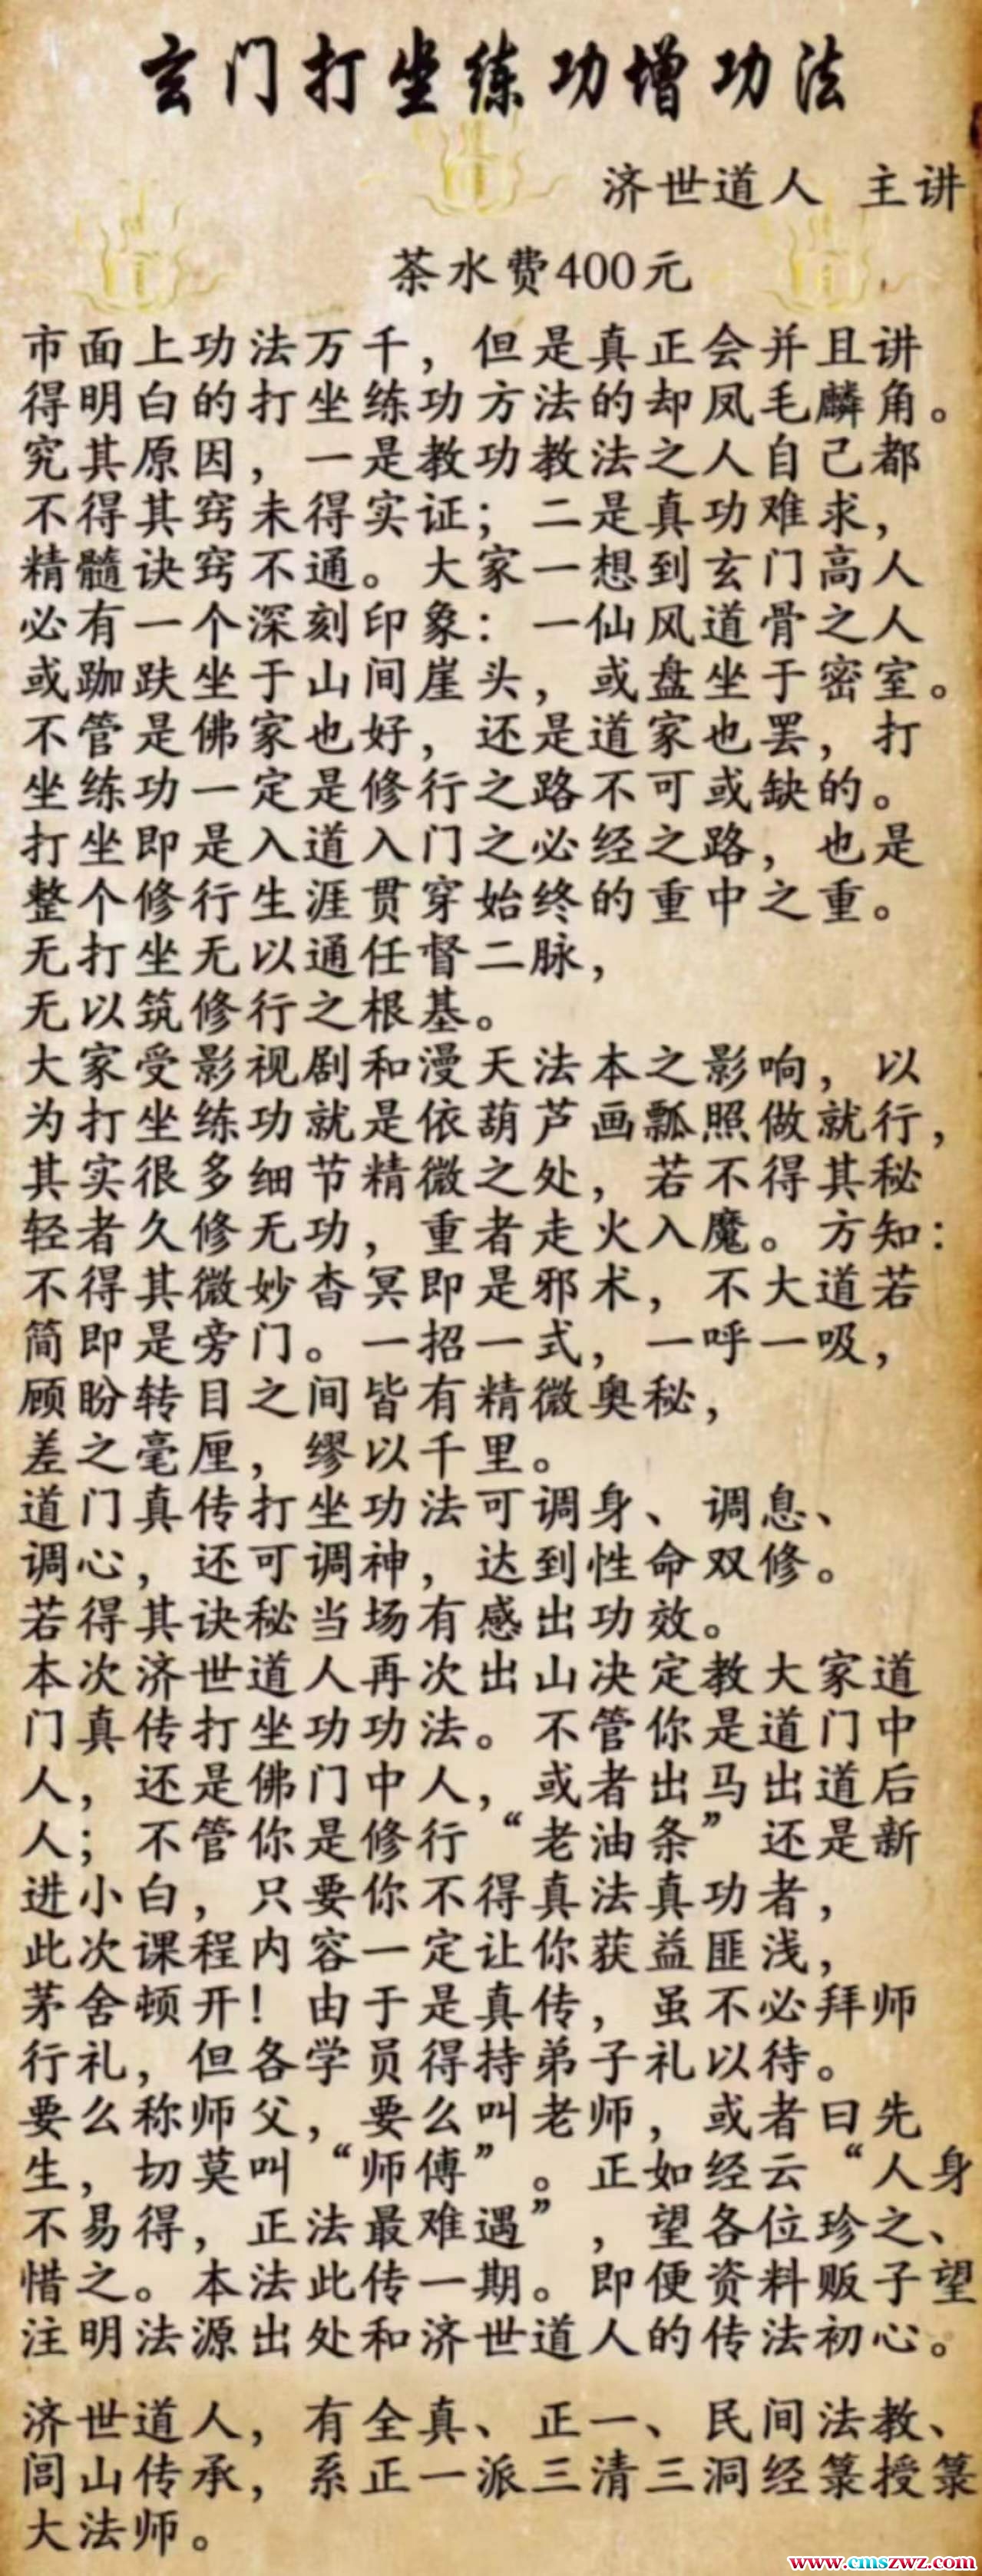 玄门打坐练功增功法
济世道人 主讲
茶水费400元
市面上功法万千，但是真正会并且讲
得明白的打坐练功方法的却凤毛麟角。
究其原因，一是教功教法之人自己都
不得其窍未得实证；二是真功难求，
精髓诀窍不通。大家一想到玄门高人
必有一个深刻印象：一仙风道骨之人
或跏趺坐于山间崖头，或盘坐于密室。
不管是佛家也好，还是道家也罢，打
坐练功一定是修行之路不可或缺的。
打坐即是入道入门之必经之路，也是
整个修行生涯贯穿始终的重中之重。
无打坐无以通任督二脉，
无以筑修行之根基。
大家受影视剧和漫天法本之影响，以
为打坐练功就是依葫芦画瓢照做就行，
其实很多细节精微之处，若不得其秘
轻者久修无功，重者走火入魔。方知：
不得其微妙杳冥即是邪术，不大道若
简即是旁门。一招一式，一呼一吸，
顾盼转目之间皆有精微奥秘，
差之毫厘，缪以千里。
道门真传打坐功法可调身、调息、
调心，还可调神，达到性命双修。
若得其诀秘当场有感出功效。
本次济世道人再次出山决定教大家道
门真传打坐功功法。不管你是道门中
人，还是佛门中人，或者出马出道后
人；不管你是修行“老油条”还是新
进小白，只要你不得真法真功者，
此次课程内容一定让你获益匪浅，
茅舍顿开！由于是真传，虽不必拜师
行礼，但各学员得持弟子礼以待。
要么称师父，要么叫老师，或者曰先
生，切莫叫“师傅”。正如经云“人身
不易得，正法最难遇”，望各位珍之、
惜之。本法此传一期。即便资料贩子望
注明法源出处和济世道人的传法初心。
济世道人，有全真、正一、民间法教、
闾山传承，系正一派三清三洞经箓授箓
大法师。
www.cmszwz.com